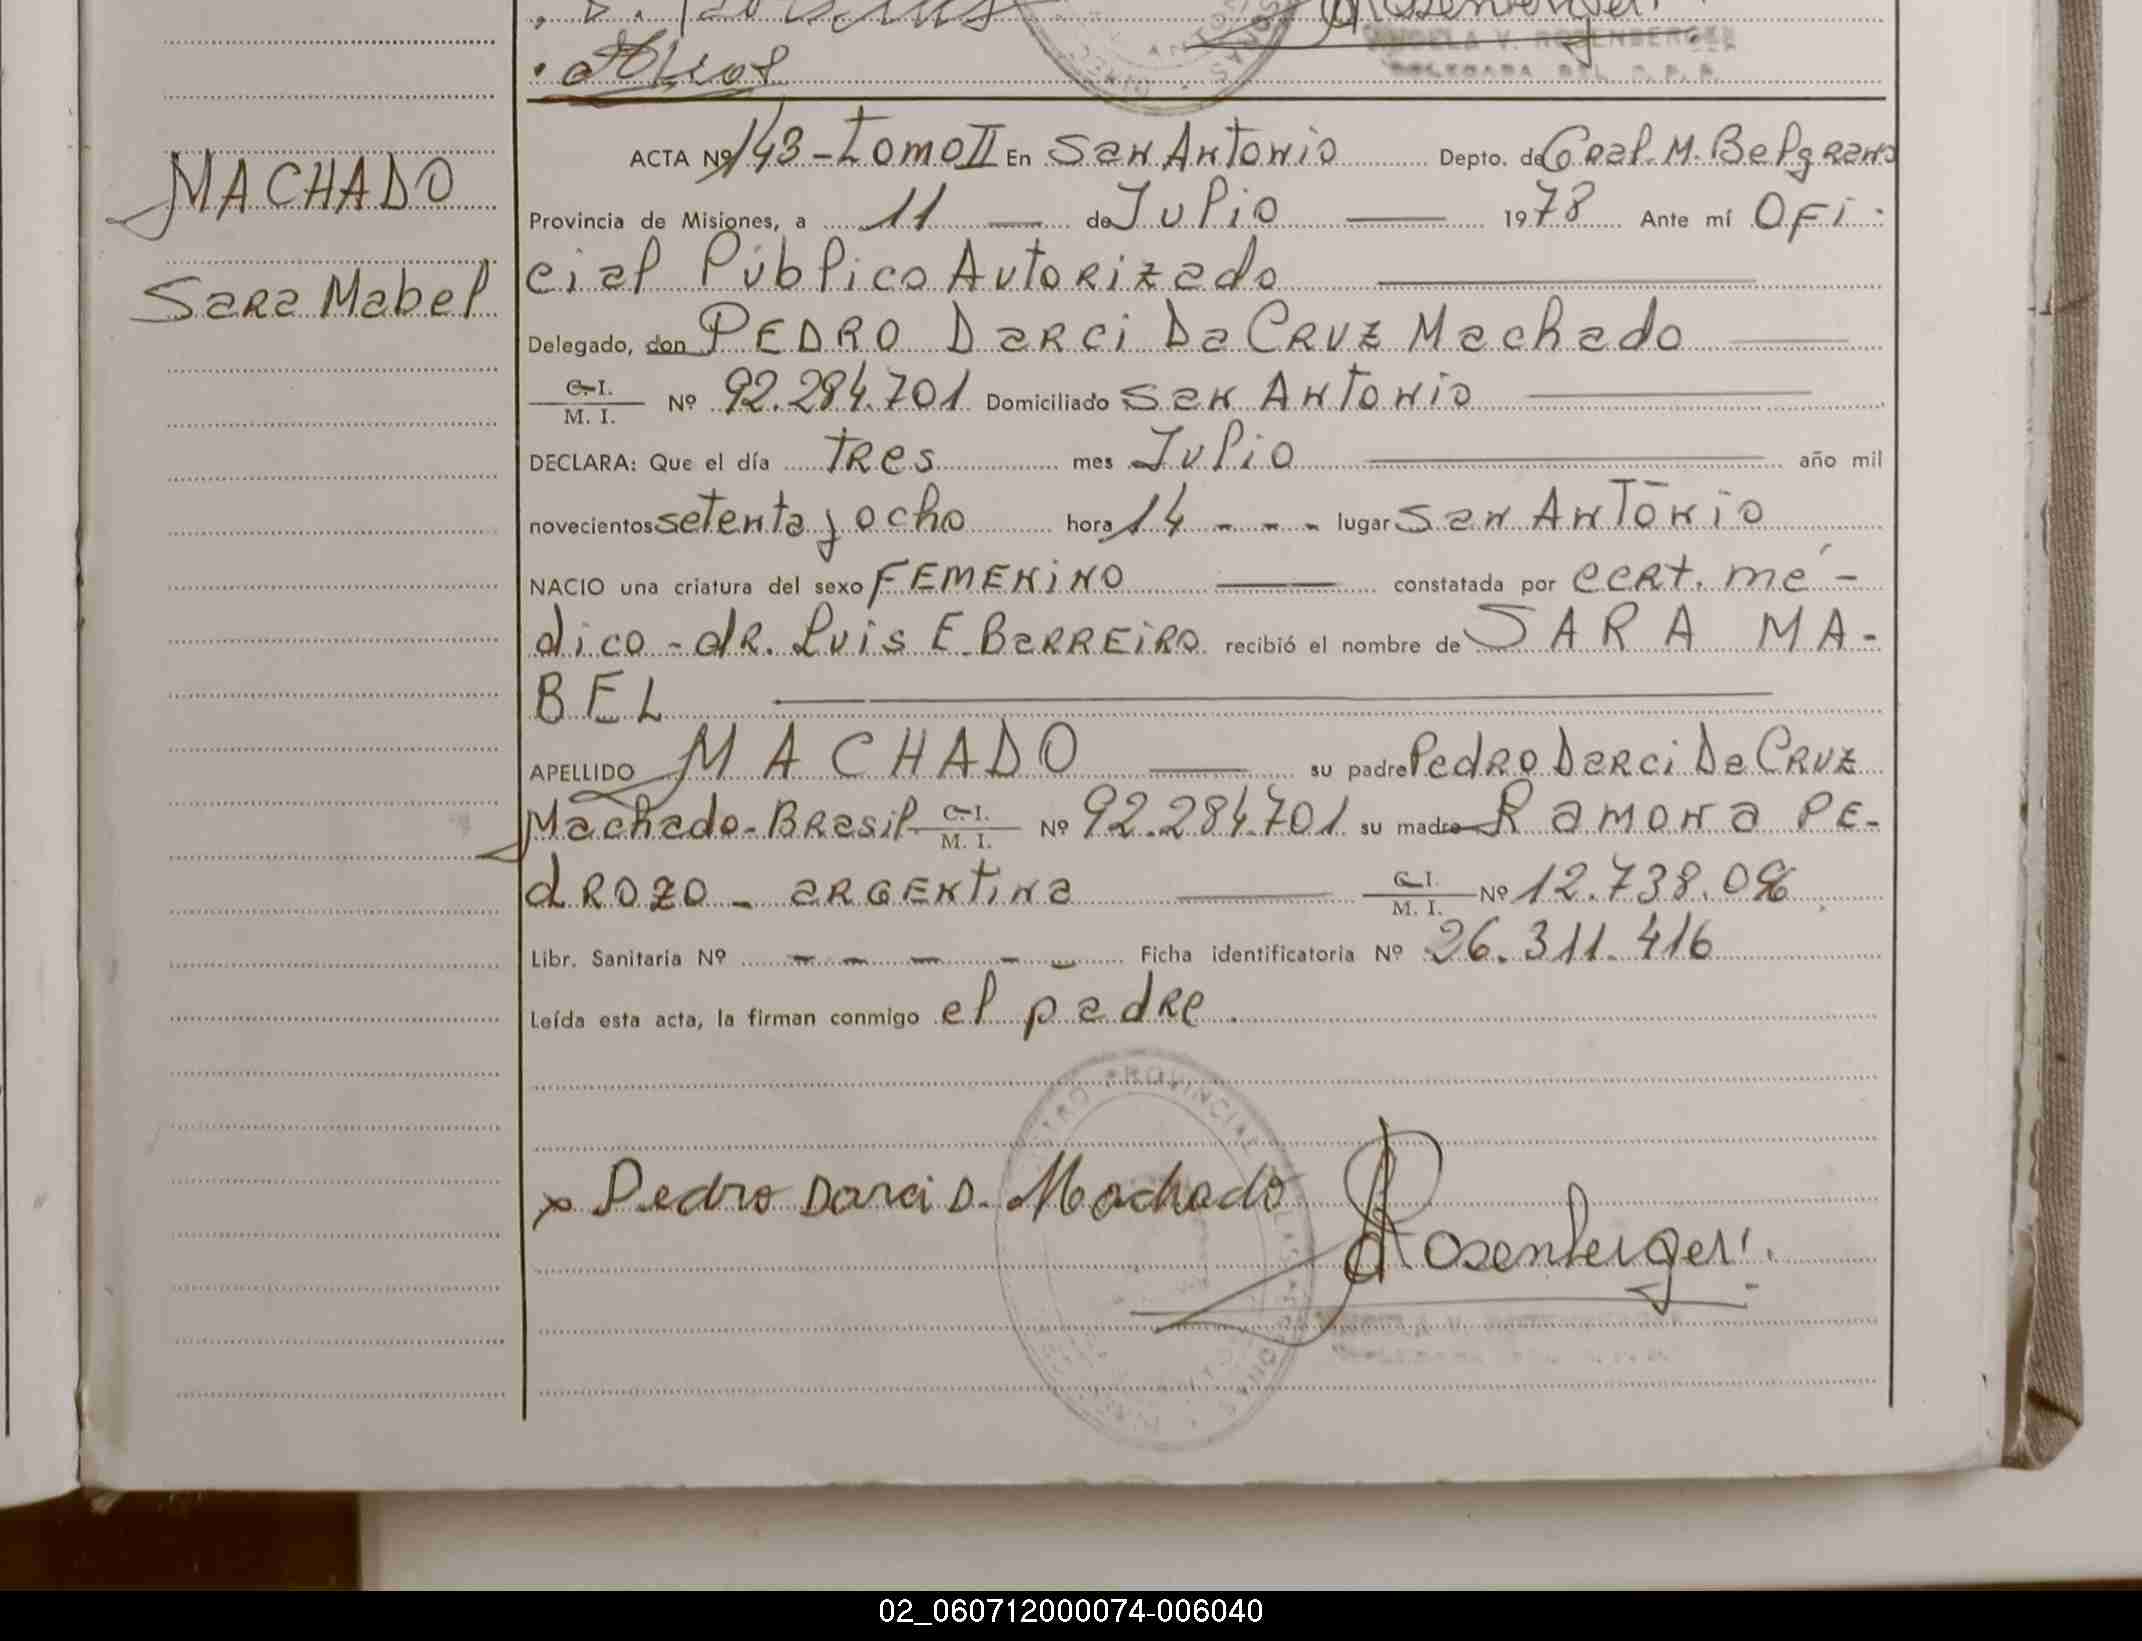 Rosenberger
ANGELA V. ROSENBERGER
DELEGADA DEL R.P.P.
MACHADO
Sara Mabel
ACTA Nº 143 - Tomo II En San Antonio Depto. de Gral. M. Belgrano
Provincia de Misiones, a 11 — de Julio — 1978 Ante mí Ofi-
cial Público Autorizado —
Delegado, don PEDRO Darci Da Cruz Machado —
C.I. / M. I. Nº 92.284.701 Domiciliado San Antonio —
DECLARA: Que el día tres mes Julio — año mil
novecientos setenta y ocho hora 14 - - - lugar San Antonio
NACIO una criatura del sexo FEMENINO — constatada por cert. mé-
dico - dr. Luis E. Barreiro recibió el nombre de SARA MA-
BEL —
APELLIDO MACHADO — su padre Pedro Darci Da Cruz
Machado - Brasil C.I. / M. I. Nº 92.284.701 su madre Ramona Pe-
drozo - argentina — C.I. / M. I. Nº
Libr. Sanitaria Nº - - - - - Ficha identificatoria Nº 26.311.416
Leída esta acta, la firman conmigo el padre.
PROVINCIAL
x Pedro Darci D. Machado
Rosenberger
02_060712000074-006040